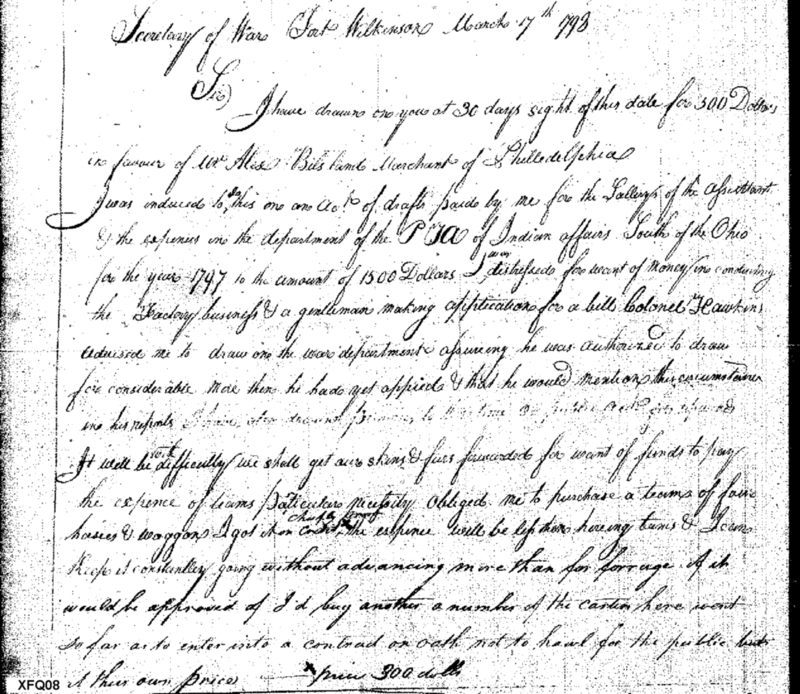 Secretary of War Fort Wilkinson March 17th 1798
Sir
I have drawn on you at 30 days sight of this date for 300 Dollars
in favour of Mr Alex Marchant of Philledelphia
I was induced to do this one on act of drafts paid by me for the Sallerys of the assistant
& the expenses in the department of the P T A of Indian affairs South of the Ohio
for the year 1797 to the amount of 1500 Dollars I was distressed for want of money in conducing
the Factory business & a gentleman making application for a bill Colonel Hawkins
advised me to draw on the war department assureing he was authorized to draw
for considerable more then he had yet applied & that he would mention this circumstance
in his reports I have also drawn
It will be with difficulty we shall get our skins & furs forwarded for want of funds to pay
the expence of teams Paticular necessity obliged me to purchase a team of four
horses & waggon I got it on credit the expence will be less then hereing teams & I can
cheap &
Keep it constantley going without advancing more than for forrage if it
would be approved of I'd buy another a number of the carters here went
so far as to enter into a contract on oath not to hawl for the public but
at their own prices * price 300 dolls
XFQ08